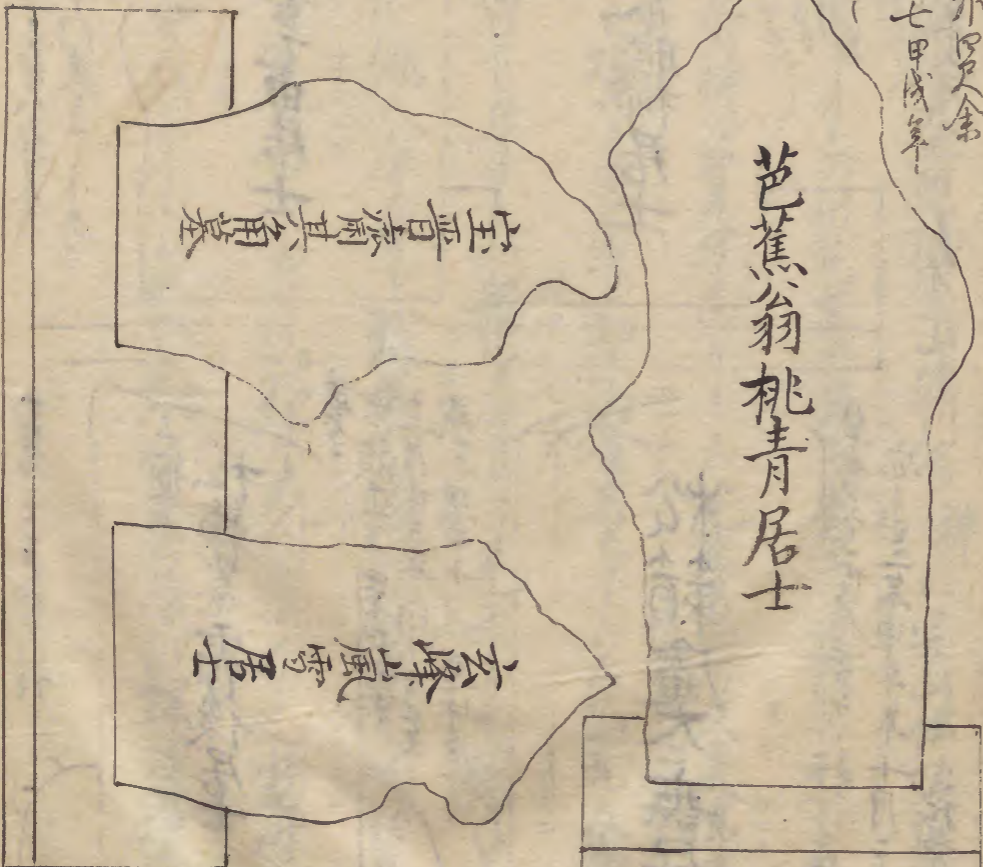 七甲戌年
芭蕉翁桃青居士
宝晋斎其角墓
玄峰嵐雪居士